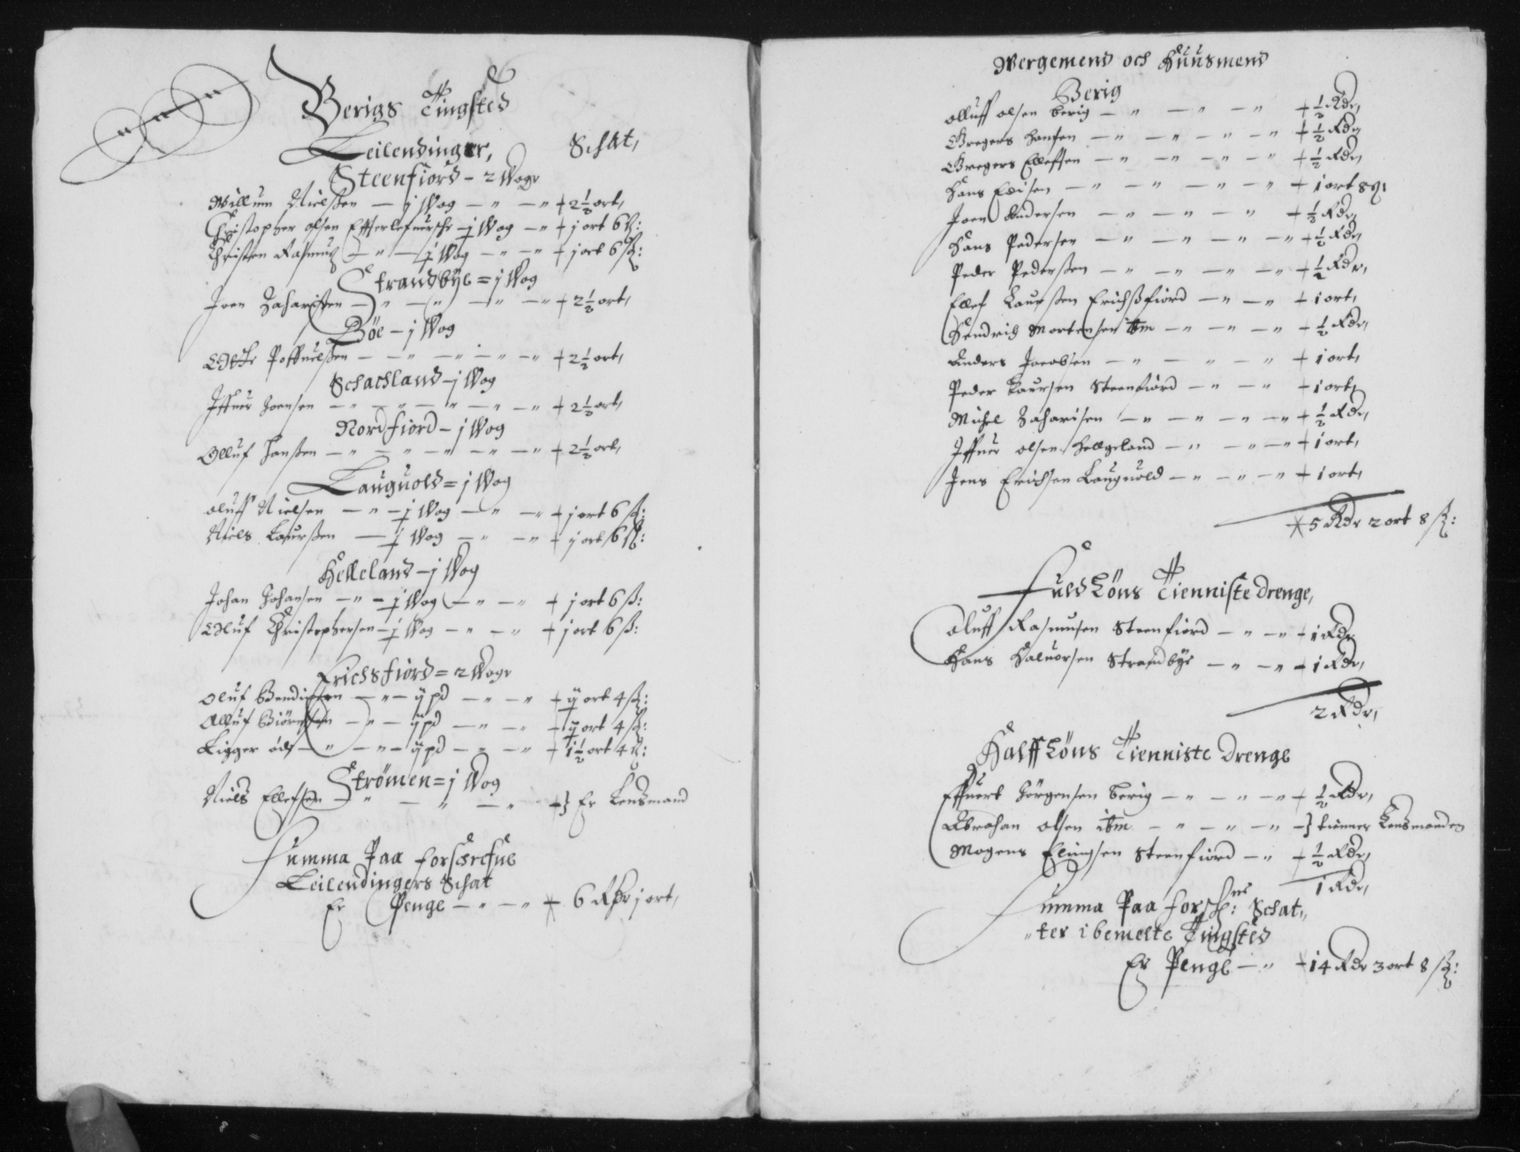 Berigs Tingsted
Leilendinger, Schat,
Steenfiord - 2 Wogr
Willum Nielsen - j Wog - 2½ ort,
Christopher olsen - j Wog - j ort 6 ß:
Christen Rasmus - j Wog - j ort 6 ß:
Strandbye = j Wog
Joen Zacharissen - 2½ ort,
Böe - j Wog
- 2½ ort,
Schachland - j Wog
Iffuer Joensen - 2½ ort,
Nordfiord - j Wog
Olluf Hansen - 2½ ort,
Lauguold = j Wog
Oluff Nielsen - j Wog - j ort 6 ß:
Niels Laursen - j Wog - j ort 6 ß:
Helleland - j Wog
Johan Johansen - j Wog - j ort 6 ß:
Oluf Christophersen - j Wog - j ort 6 ß:
Erichsfiord = 2 Wogr
Oluf Bendixsen - ij pd - ij ort 4 ß:
Olluf Biörnsen - ij pd - ij ort 4 ß:
Ligger öde - ij pd - 1½ ort 4 ß:
Strömen = j Wog
Niels Ellefsen - } Er Lensmand
Summa Paa forschrefne
Leilendingers Schat
Er Penge - 6 Rdr j ort,
Wergemend och Huusmend
Berig
Olluff olsen berig - ½ Rdr,
Gregers Hansen - ½ Rdr,
Gregers Ellefsen - ½ Rdr,
Hans - 1 ort 8 ß
Joen Andersen - ½ Rdr,
Hans Pedersen - ½ Rdr,
Peder Pedersen - ½ Rdr,
Ellef Laursen Erichsfiord - 1 ort,
Hendrich Mortensen ibm - ½ Rdr,
Anders Jacobsen - 1 ort,
Peder Laursen Steenfiord - 1 ort,
Michel Zacharisen - ½ Rdr,
Iffuer olsen Hellgeland - 1 ort,
Jens Erichsen Lauguold - 1 ort,
5 Rdr 2 ort 8 ß:
Fuld Löns Tienniste drenge,
Oluff Rasmusen Steenfiord - 1 Rdr,
Hans Haluorsen Strandbye - 1 Rdr,
2 Rdr,
Halff Löns Tienniste drenge
Effuert Jörgensen berig - ½ Rdr,
Abraham olsen ibm - } tienner Lensmanden
Mogens Steenfiord - ½ Rdr,
1 Rdr,
Summa Paa forschne: Schat,
ter ibemelte Tingsted
Er Penge - 14 Rdr 3 ort 8 ß: